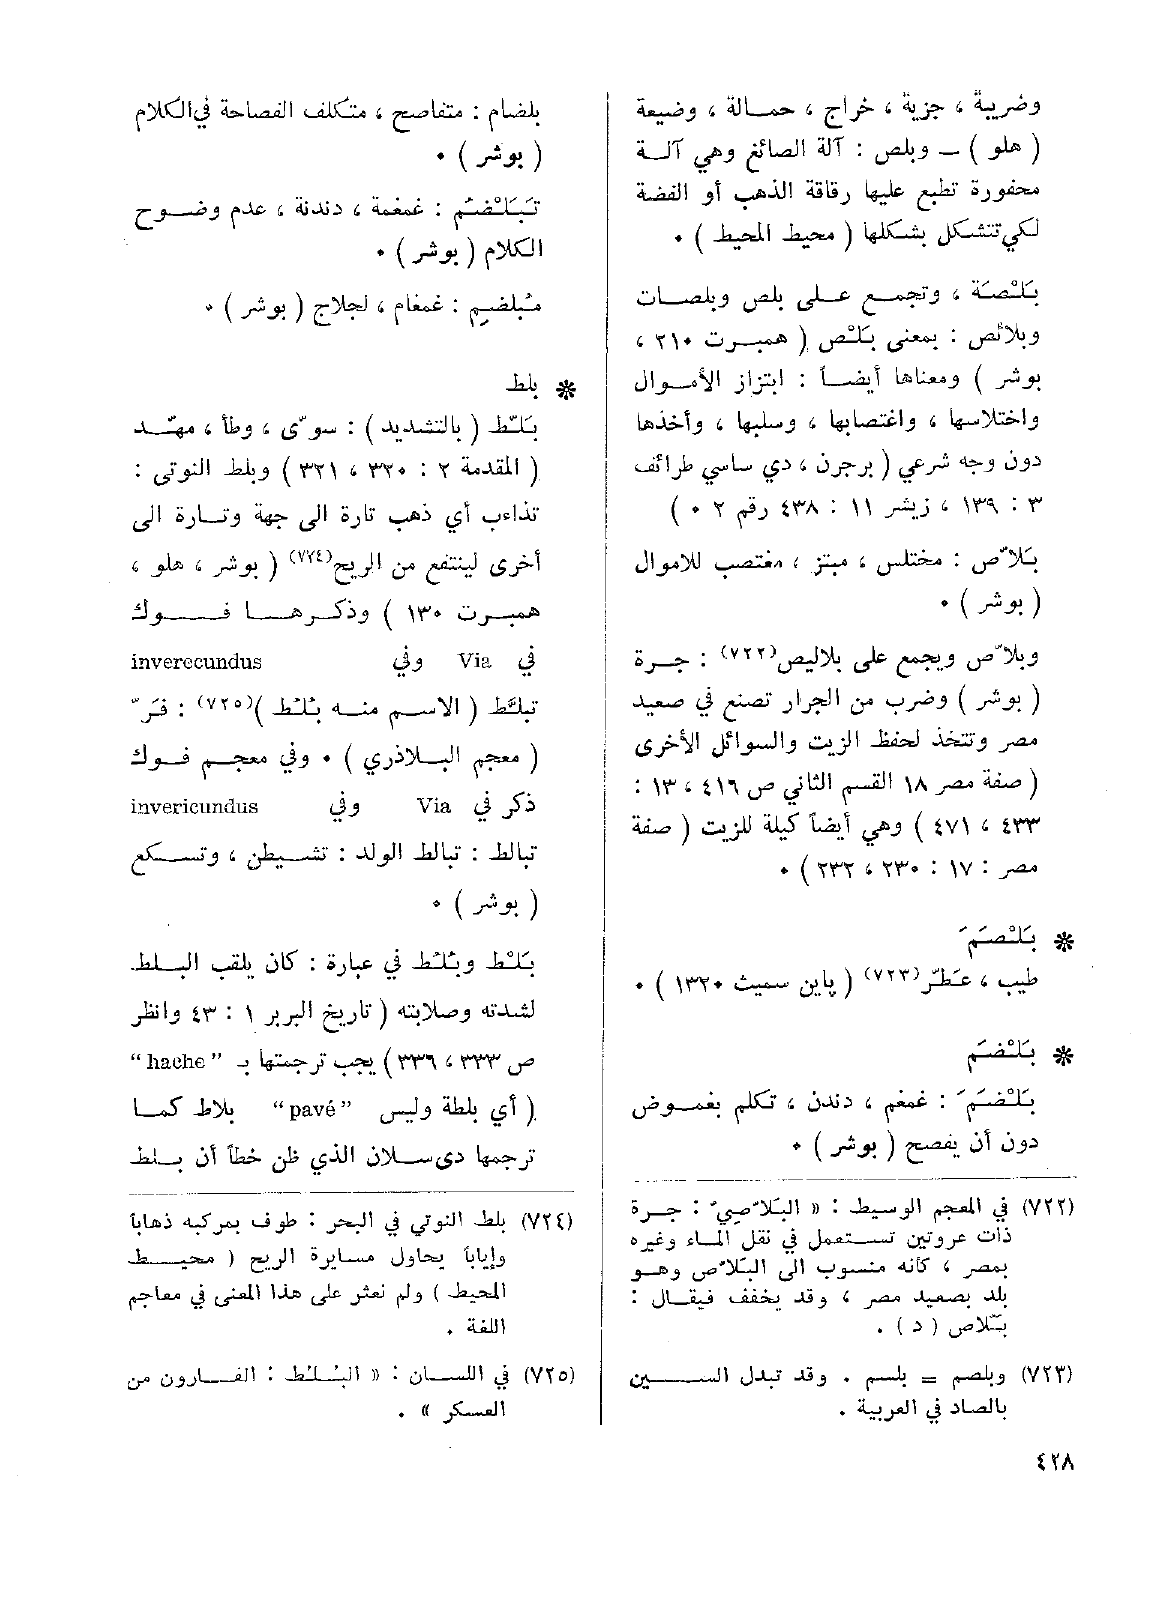 وضريبة ، جزية ، خراج ، حمالة ، وضيعة
( هلو ) — وبلص : آلة الصائغ وهي آلة
محفورة تطبع عليها رقاقة الذهب أو الفضة
لكي تتشكل بشكلها ( محيط المحيط ) ٠
بَلْصَة ، وتجمع على بلص وبلصات
وبلائص : بمعنى بَلْص ( همبرت ٢١٠ ،
بوشر ) ومعناها أيضاً : ابتزاز الأموال
واختلاسها ، واغتصابها ، وسلبها ، وأخذها
دون وجه شرعي ( برجرن ، دي ساسي طرائف
٣ : ١٣٩ ، زيشر ١١ : ٤٣٨ رقم ٢ ٠ )
بَلاّص : مختلس ، مبتز ، مغتصب للاموال
( بوشر ) ٠
وبلاّص ويجمع على بلاليص(٧٢٢) : جرة
( بوشر ) وضرب من الجرار تصنع في صعيد
مصر وتتخذ لحفظ الزيت والسوائل الأخرى
( صفة مصر ١٨ القسم الثاني ص ٤١٦ ، ١٣ :
٤٣٣ ، ٤٧١ ) وهي أيضاً كيلة للزيت ( صفة
مصر : ١٧ : ٢٣٠ ، ٢٣٢ ) ٠
❋ بَلْصَمَ
طيب ، عَطَّر(٧٢٣) ( پاين سميث ١٣٢٠ ) ٠
❋ بَلْضَم
بَلْضَمَ : غمغم ، دندن ، تكلم بغموض
دون أن يفصح ( بوشر ) ٠
(٧٢٢) في المعجم الوسيط : « البَلاّصِيّ : جرة
ذات عروتين تستعمل في نقل الماء وغيره
بمصر ، كأنه منسوب الى البَلاّص وهو
بلد بصعيد مصر ، وقد يخفف فيقال :
بَلاّص ( د ) .
(٧٢٣) وبلصم = بلسم . وقد تبدل السين
بالصاد في العربية .
بلضام : متفاصح ، متكلف الفصاحة في الكلام
( بوشر ) ٠
تَبَلْضُم : غمغمة ، دندنة ، عدم وضوح
الكلام ( بوشر ) ٠
مُبلضِم : غمغام ، لجلاج ( بوشر ) ٠
❋ بلط
بَلَّط ( بالتشديد ) : سوّى ، وطأ ، مهّد
( المقدمة ٢ : ٣٢٠ ، ٣٢١ ) وبلط النوتى :
تذاءب أي ذهب تارة الى جهة وتارة الى
أخرى لينتفع من الريح(٧٢٤) ( بوشر ، هلو ،
همبرت ١٣٠ ) وذكرها فوك
في Via وفي inverecundus
تبلَّط ( الاسم منه بُلْط )(٧٢٥) : فَرّ
( معجم البلاذري ) ٠ وفي معجم فوك
ذكر في Via وفي invericundus
تبالط : تبالط الولد : تشيطن ، وتسكع
( بوشر ) ٠
بَلْط وبُلْط في عبارة : كان يلقب البلط
لشدته وصلابته ( تاريخ البربر ١ : ٤٣ وانظر
ص ٣٣٣ ، ٣٣٦ ) يجب ترجمتها بـ "hache"
( أي بلطة وليس "pavé" بلاط كما
ترجمها دي سلان الذي ظن خطأ أن بلط
(٧٢٤) بلط النوتي في البحر : طوف بمركبه ذهاباً
وإياباً يحاول مسايرة الريح ( محيط
المحيط ) ولم نعثر على هذا المعنى في معاجم
اللغة .
(٧٢٥) في اللسان : « البُلُط : الفارون من
العسكر » .
٤٢٨